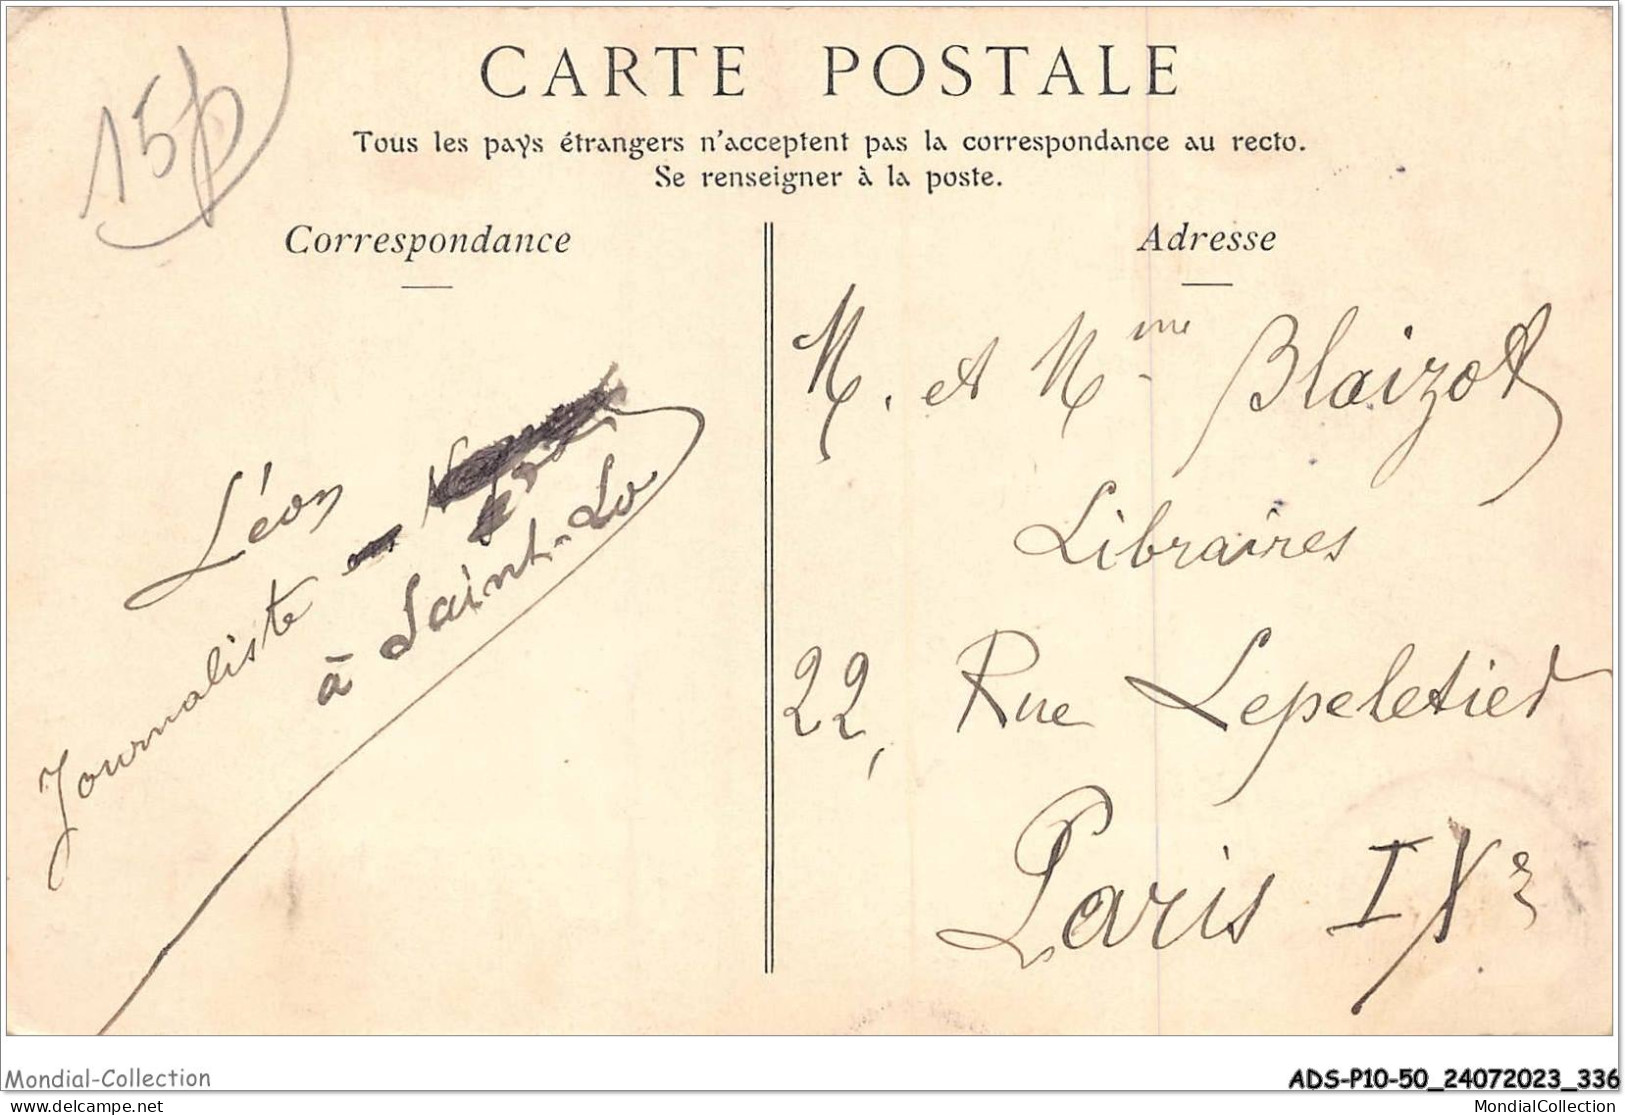 15f
CARTE POSTALE
Tous les pays étrangers n'acceptent pas la correspondance au recto.
Se renseigner à la poste.
Correspondance
Léon
Journaliste
à Saint-Lo
Adresse
M. et Mme Blaizot
Libraires
22, Rue Lepeletier
Paris IXe
Mondial-Collection
ADS-P10-50_24072023_336
MondialCollection
www.delcampe.net